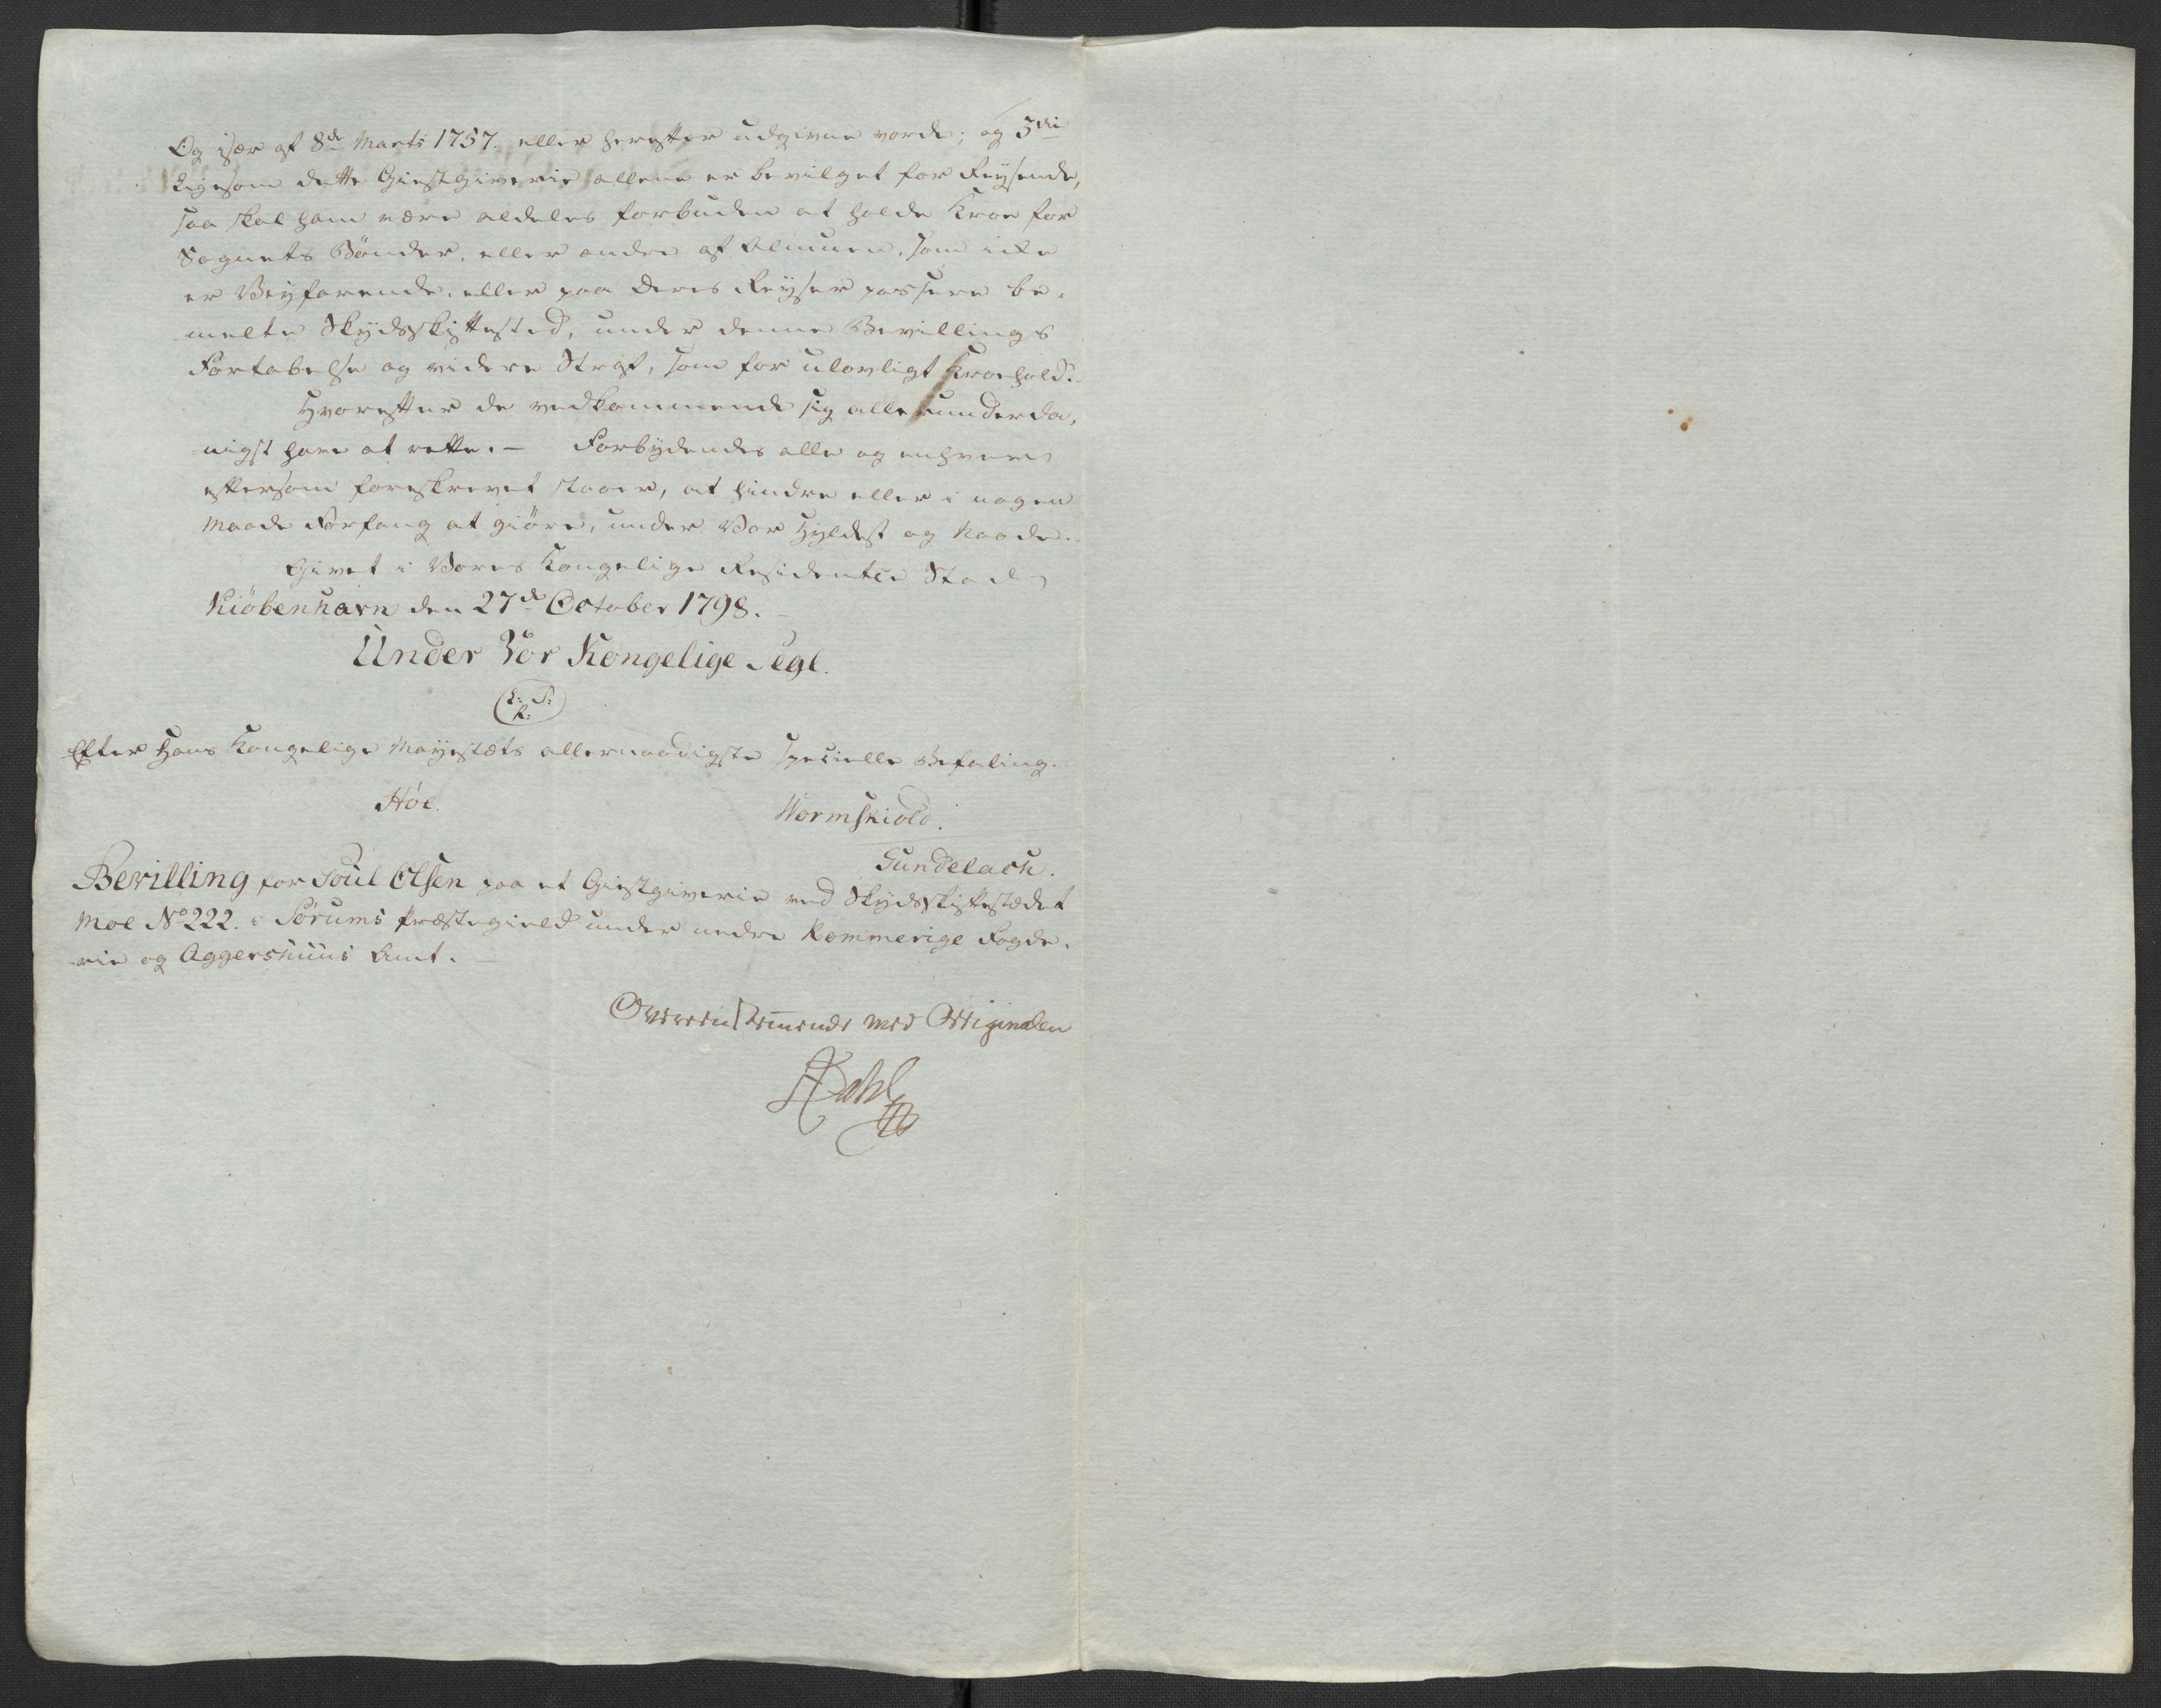 Og især af 8de Marti 1757. eller herefter udgivne vorde; og 3die
Ligesom dette Giestgiverie allene er bevilget for Reysende,
saa skal ham være aldeles forbuden at holde Kroe for
Sognets Bönder, eller andre af Almuen, som icke
er Veyfarende, eller paa deres Reyser passere be-
melte Skydsskiftested, under denne Bevillings
Fortabelse og videre Straf, som for ulovligt Kroehold.
Hvorefter de vedkommende sig allerunderda-
nigst have at rette. — Forbydendes alle og enhver
eftersom foreskrevet staaer, at hindre eller i nogen
Maade Forfang at giöre, under Vor Hyldest og Naade.
Givet i Vores Kongelige Residentze Stad
Kiöbenhavn den 27de October 1798.
Under Vor Kongelige Segl.
L: S:
R:
Efter Hans Kongelige Mayestæts allernaadigste specielle Befaling.
Höe.
Wormskiold.
Gundelach.
Bevilling for Poul Olsen paa et Giestgiverie ved Skydsskiftestædet
Moe No 222. i Sörums Præstegield under nedre Rommerige Fogde-
rie og Aggershuus Amt. —
Overeenstemende med Originalen
Dahl